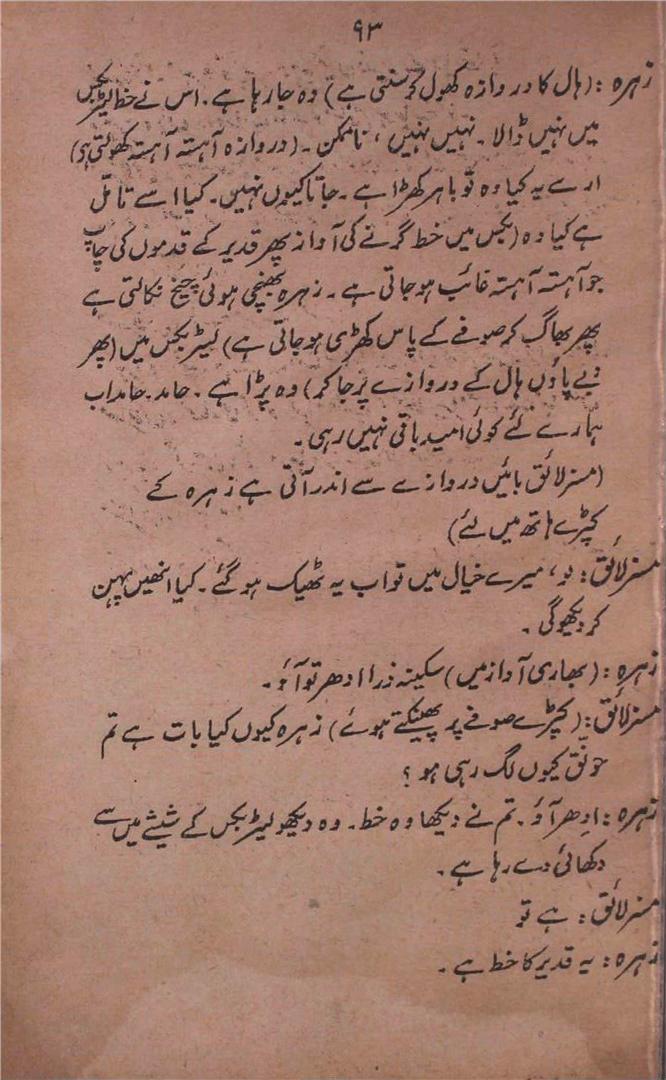 ۹۳
زہرہ : (ہال کا دروازہ کھول کر سنتی ہے) وہ جا رہا ہے. اس نے خط لیٹر بکس
میں نہیں ڈالا ۔ نہیں نہیں ، ناممکن ۔ (دروازہ آہستہ آہستہ کھولتی ہے)
ارے یہ کیا وہ تو باہر کھڑا ہے ۔ جاتا کیوں نہیں ۔ کیا اسے تامل
ہے کیا وہ (بکس میں خط گرنے کی آواز پھر قدیر کے قدموں کی چاپ
جو آہستہ آہستہ غائب ہو جاتی ہے ۔ زہرہ بھنچی ہوئی چیخ نکالتی ہے
پھر بھاگ کر صوفے کے پاس کھڑی ہو جاتی ہے) لیٹر بکس میں (پھر
دبے پاؤں ہال کے دروازے پر جا کر) وہ پڑا ہے . حامد . حامد اب
ہمارے لئے کوئی امید باقی نہیں رہی ۔
(مسز لائق بائیں دروازے سے اندر آتی ہے زہرہ کے
کپڑے ہاتھ میں لئے)
مسز لائق : لو ، میرے خیال میں تو اب یہ ٹھیک ہو گئے ۔ کیا انھیں پہن
کر دیکھو گی ۔
زہرہ : (بھاری آواز میں) سکینہ ذرا ادھر تو آؤ ۔
مسز لائق : (کپڑے صوفے پر پھینکتے ہوئے) زہرہ کیوں کیا بات ہے تم
ہونق کیوں لگ رہی ہو ؟
زہرہ : ادھر آؤ . تم نے دیکھا وہ خط ۔ وہ دیکھو لیٹر بکس کے شیشے میں سے
دکھائی دے رہا ہے ۔
مسز لائق : ہے تو
زہرہ : یہ قدیر کا خط ہے ۔